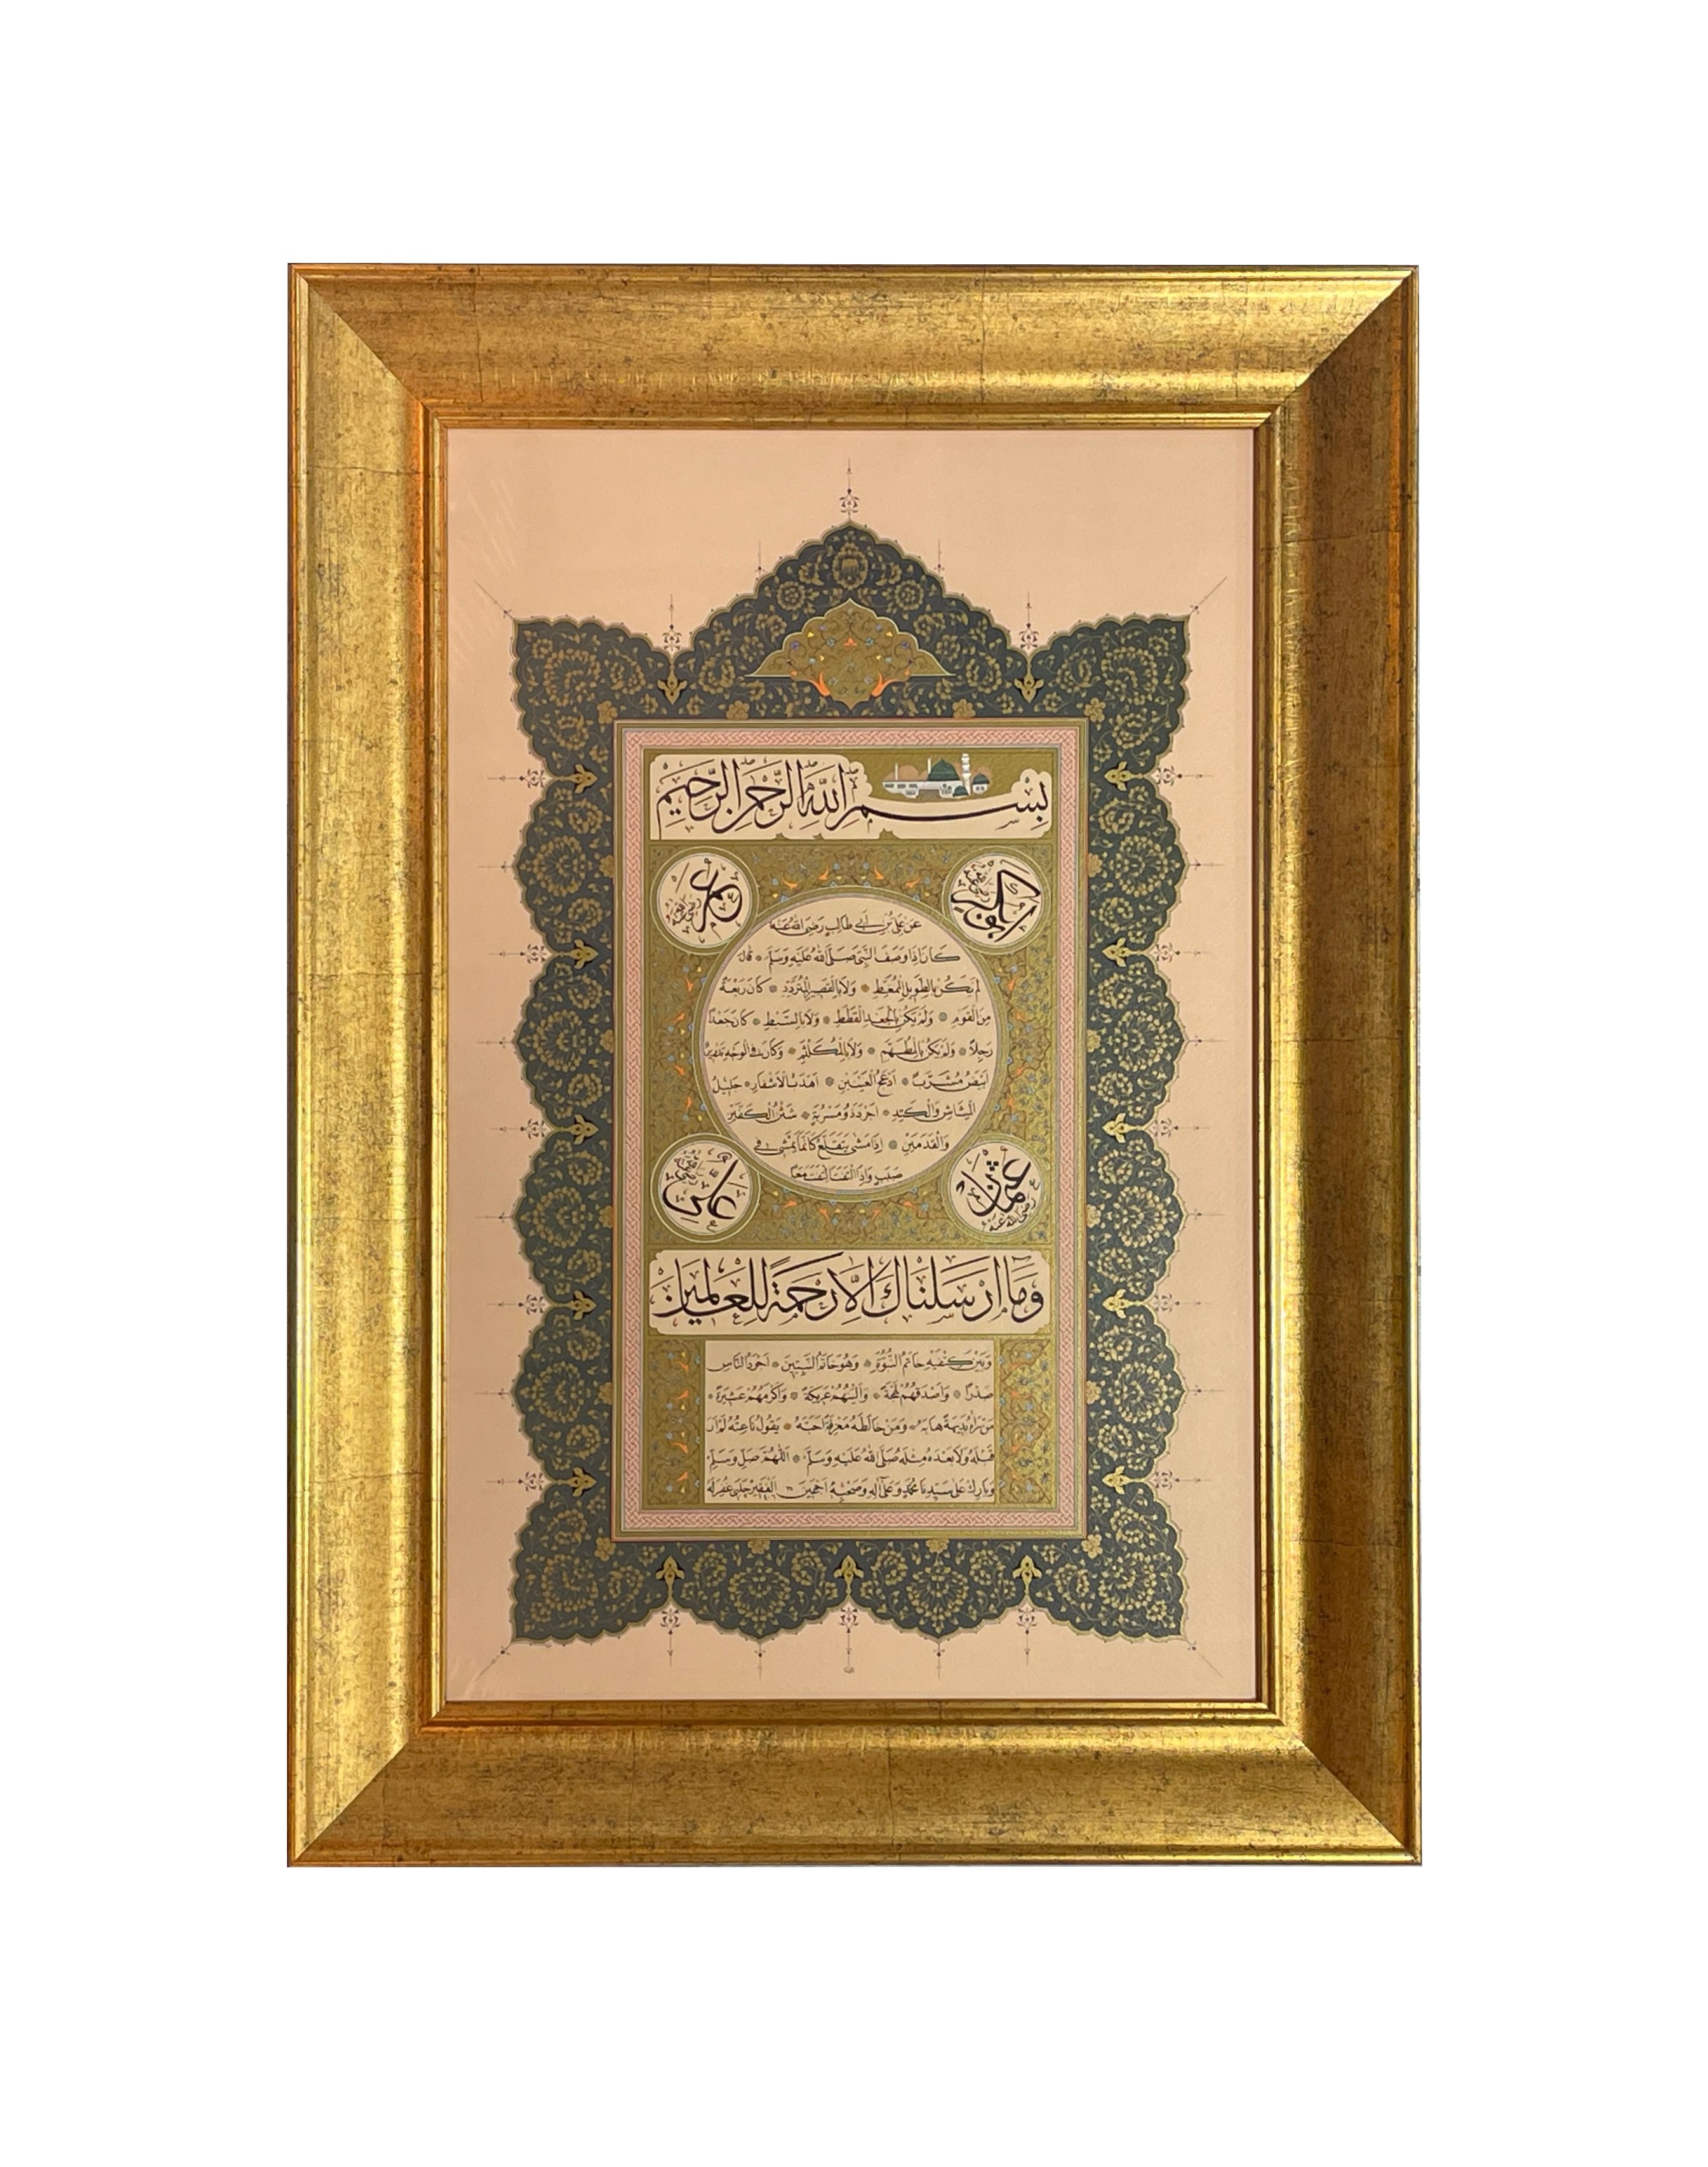 بِسْمِ اللّٰهِ الرَّحْمٰنِ الرَّحِيمِ
ابو بكر رضى الله عنه
عمر رضى الله عنه
عَنْ عَلِيِّ بْنِ اَبِي طَالِبٍ رَضِيَ اللهُ عَنْهُ
كَانَ اِذَا وَصَفَ النَّبِيَّ صَلَّى اللهُ عَلَيْهِ وَسَلَّمَ * قَالَ
لَمْ يَكُنْ بِالطَّوِيلِ الْمُمَّغِطِ * وَلَا بِالْقَصِيرِ الْمُتَرَدِّدِ * كَانَ رَبْعَةً
مِنَ الْقَوْمِ * وَلَمْ يَكُنْ بِالْجَعْدِ الْقَطَطِ * وَلَا بِالسَّبْطِ * كَانَ جَعْدًا
رَجِلًا * وَلَمْ يَكُنْ بِالْمُطَهَّمِ * وَلَا بِالْمُكَلْثَمِ * وَكَانَ فِي الْوَجْهِ تَدْوِيرٌ
اَبْيَضُ مُشْرَبٌ * اَدْعَجُ الْعَيْنَيْنِ * اَهْدَبُ الْاَشْفَارِ * جَلِيلُ
الْمُشَاشِ وَالْكَتَدِ * اَجْرَدُ ذُو مَسْرُبَةٍ * شَثْنُ الْكَفَّيْنِ
وَالْقَدَمَيْنِ * اِذَا مَشَى يَتَقَلَّعُ كَاَنَّمَا يَمْشِي فِي
صَبَبٍ وَاِذَا الْتَفَتَ الْتَفَتَ مَعًا
عثمان رضى الله عنه
على رضى الله عنه
وَمَا اَرْسَلْنَاكَ اِلَّا رَحْمَةً لِلْعَالَمِينَ
وَبَيْنَ كَتِفَيْهِ خَاتَمُ النُّبُوَّةِ * وَهُوَ خَاتَمُ النَّبِيِّينَ * اَجْوَدُ النَّاسِ
صَدْرًا * وَاَصْدَقُهُمْ لَهْجَةً * وَاَلْيَنُهُمْ عَرِيكَةً * وَاَكْرَمُهُمْ عَشِيرَةً *
مَنْ رَاٰهُ بَدِيهَةً هَابَهُ * وَمَنْ خَالَطَهُ مَعْرِفَةً اَحَبَّهُ * يَقُولُ نَاعِتُهُ لَمْ اَرَ
قَبْلَهُ وَلَا بَعْدَهُ مِثْلَهُ صَلَّى اللهُ عَلَيْهِ وَسَلَّمَ * اَللّٰهُمَّ صَلِّ وَسَلِّمْ
وَبَارِكْ عَلَى سَيِّدِنَا مُحَمَّدٍ وَعَلَى اٰلِهِ وَصَحْبِهِ اَجْمَعِينَ الْفَقِير چلبى غُفِرَ لَهُ